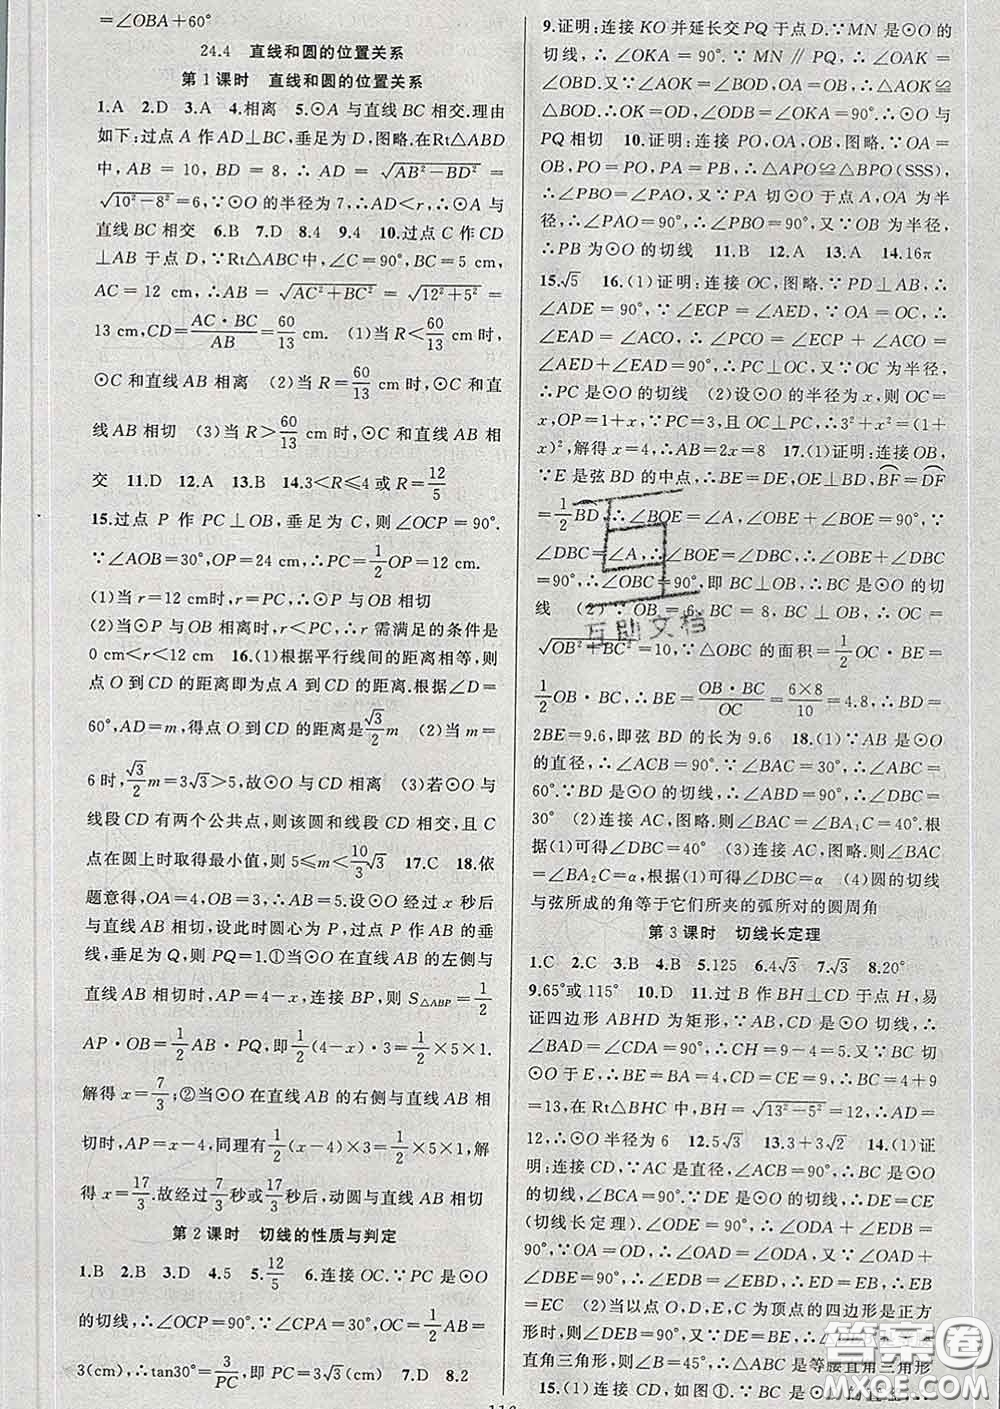 =∠OBA+60°
24.4 直线和圆的位置关系
第1课时 直线和圆的位置关系
1.A 2.D 3.A 4.相离 5.⊙A与直线BC相交.理由
如下:过点A作AD⊥BC,垂足为D,图略.在Rt△ABD
中,AB=10,BD=8,∴AD=√(AB²-BD²)=
√(10²-8²)=6,∵⊙O的半径为7,∴AD<r,∴⊙A与
直线BC相交 6.B 7.D 8.4 9.4 10.过点C作CD
⊥AB于点D.∵Rt△ABC中,∠C=90°,BC=5 cm,
AC=12 cm,∴AB=√(AC²+BC²)=√(12²+5²)=
13 cm,CD=AC·BC/AB=60/13 cm. (1)当R<60/13 cm时,
⊙C和直线AB相离 (2)当R=60/13 cm时,⊙C和直
线AB相切 (3)当R>60/13 cm时,⊙C和直线AB相
交 11.D 12.A 13.B 14.3<R≤4或R=12/5
15.过点P作PC⊥OB,垂足为C,则∠OCP=90°.
∵∠AOB=30°,OP=24 cm,∴PC=1/2OP=12 cm.
(1)当r=12 cm时,r=PC,∴⊙P与OB相切
(2)当⊙P与OB相离时,r<PC,∴r需满足的条件是
0 cm<r<12 cm 16.(1)根据平行线间的距离相等,则
点O到CD的距离即为点A到CD的距离.根据∠D=
60°,AD=m,得点O到CD的距离是√3/2m (2)当m=
6时,√3/2m=3√3>5,故⊙O与CD相离 (3)若⊙O与
线段CD有两个公共点,则该圆和线段CD相交,且C
点在圆上时取得最小值,则5≤m<10/3√3 17.C 18.依
题意得,OA=4,OB=3,∴AB=5.设⊙O经过x秒后
与直线AB相切,设此时圆心为P,过点P作AB的垂
线,垂足为Q,则PQ=1.①当⊙O在直线AB的左侧与
直线AB相切时,AP=4-x,连接BP,则S△ABP=1/2
AP·OB=1/2AB·PQ,即1/2(4-x)·3=1/2×5×1.
解得x=7/3;②当⊙O在直线AB的右侧与直线AB相
切时,AP=x-4,同理有1/2(x-4)×3=1/2×5×1,解
得x=17/3.故经过7/3秒或17/3秒后,动圆与直线AB相切
第2课时 切线的性质与判定
1.B 2.B 3.D 4.5 5.12/5 6.连接OC.∵PC是⊙O
的切线,∴∠OCP=90°.∵∠CPA=30°,OC=1/2AB=
3(cm),∴tan30°=3/PC,即PC=3√3(cm) 7.D 8.2
9.证明:连接KO并延长交PQ于点D.∵MN是⊙O
的切线,∴∠OKA=90°.∵MN∥PQ,∴∠OAK=
∠OBD.又∵∠AOK=∠BOD,∴△AOK≌
△BOD.∴OK=OD,∠ODB=∠OKA=90°.∴⊙O与
PQ相切 10.证明:连接PO,OA,OB,图略.∵OA=
OB,PO=PO,PA=PB,∴△APO≌△BPO(SSS),
∴∠PBO=∠PAO,又∵PA切⊙O于点A,OA为半
径,∴∠PAO=90°,∴∠PBO=90°,又∵OB为半径,
∴PB为⊙O的切线 11.B 12.A 13.A 14.16π
15.√5 16.(1)证明:连接OC,图略.∵PD⊥AB,∴
∠ADE=90°.∵∠ECP=∠AED,又∵OA=OC,∴
∠EAD=∠ACO,∴∠PCO=∠ECP+∠ACO=
∠AED+∠EAD=90°,∴PC⊥OC.又OC为半径,
∴PC是⊙O的切线 (2)设⊙O的半径为x,则OC=
x,OP=1+x,∵PC=3,且OC⊥PC,∴3²+x²=(1+
x)²,解得x=4,∴AB=2x=8 17.(1)证明:连接OB,
∵E是弦BD的中点,∴BE=DE,OE⊥BD,BF=DF
=1/2BD,∴∠BOE=∠A,∠OBE+∠BOE=90°.∵
∠DBC=∠A,∴∠BOE=∠DBC,∴∠OBE+∠DBC
=90°,∴∠OBC=90°,即BC⊥OB,∴BC是⊙O的切
线 (2)∵OB=6,BC=8,BC⊥OB,∴OC=
√(OB²+BC²)=10.∵△OBC的面积=1/2OC·BE=
1/2OB·BC,∴BE=OB·BC/OC=6×8/10=4.8,∴BD=
2BE=9.6,即弦BD的长为9.6 18.(1)∵AB是⊙O
的直径,∴∠ACB=90°.∵∠BAC=30°,∴∠ABC=
60°.∵BD是⊙O的切线,∴∠ABD=90°,∴∠DBC=
30° (2)连接AC,图略.则∠BAC=∠BA₁C=40°.
根据(1)可得∠DBC=40° (3)连接AC,图略.则∠BAC
=∠BA₂C=α,根据(1)可得∠DBC=α (4)圆的切线
与弦所成的角等于它们所夹的弧所对的圆周角
第3课时 切线长定理
1.C 2.C 3.B 4.B 5.125 6.4√3 7.√3 8.20°
9.65°或115° 10.D 11.过B作BH⊥CD于点H,易
证四边形ABHD为矩形,∵AB,CD是⊙O的切线,∴
∠BAD=∠CDA=90°,∴CH=9-4=5.又∵BC切
⊙O于E,∴BE=BA=4,CD=CE=9,∴BC=4+9
=13,在Rt△BHC中,BH=√(13²-5²)=12,∴AD=
12,∴⊙O半径为6 12.5√3 13.3+3√2 14.(1)证
明:连接CD,∵∠ACB=90°,AC为直径,∴BC是⊙O
的切线,∠BCA=90°.∵DE是⊙O的切线,∴DE=CE
(切线长定理).∠ODE=90°,∴∠ODA+∠EDB=
90°,∵OA=OD,∴∠OAD=∠ODA,又∵∠OAD+
∠DBE=90°,∴∠EDB=∠EBD,∴DE=EB,∴EB
=EC (2)当以点O,D,E,C为顶点的四边形是正方
形时,则∠DEB=90°,又∵DE=BE,∴△DEB是等腰
直角三角形,则∠B=45°,∴△ABC是等腰直角三角形
15.(1)连接CD,如图①.∵
互助文档
答案圈